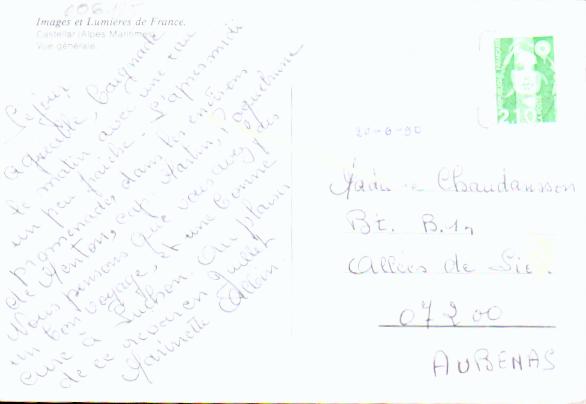 Images et Lumières de France.
Castellar (Alpes Maritimes)
Vue générale
Séjour
agréable, baignade
le matin avec une eau
un peu fraîche - l'après midi
promenades dans les environs
de Menton, cap Martin, Roquebrune
Nous pensons que vous avez fais
un bon voyage, et une bonne
cure à Luchon. Au plaisir
de ce revoir en Juillet
Marinette Albin
2,10
20-6-90
Chaudanson
Bt. B.1
Allées de
07200
AUBENAS